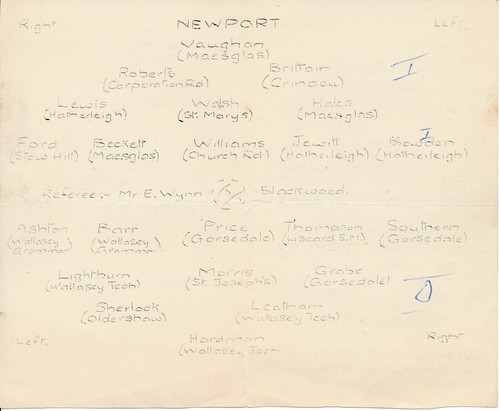 Right NEWPORT Left
Vaughan
(Maesglas)
Roberts Brittain
(Corporation Rd) (Crindau)
I
Lewis Walsh Hales
(Hatherleigh) (St. Mary's) (Maesglas)
I
Ford Beckett Williams Jewitt Bowden
(Stow Hill) (Maesglas) (Church Rd) (Hatherleigh) (Hatherleigh)
Referee:- Mr E. Wynn Blackwood.
Ashton Barr Price Thompson Southern
(Wallasey (Wallasey) (Gorsedale) (Liscard S.M.) (Gorsedale)
Grammar Gramma
Lightburn Morris Grabe
(Wallasey Tech) (St. Joseph's) (Gorsedale)
Sherlock Leatham
(Oldershaw) (Wallasey Tech)
Left. Hardman Right
(Wallasey Tech